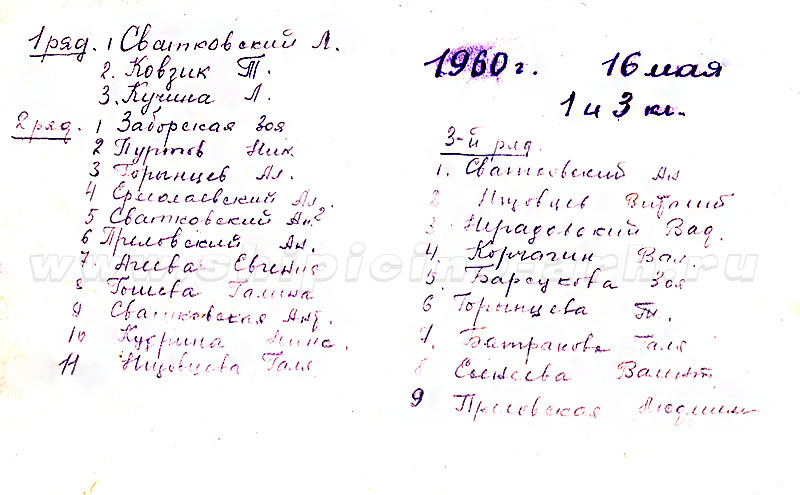 1 ряд. 1 Сватковский Л.
2. Ковзик Т.
3. Кучина Л.
2 ряд. 1 Заборская Зоя
2 Пуртов Ник
3 Горынцев Ал.
4 Ермолаевский Ал.
5 Сватковский Ан.2
6 Преловский Ан.
7. Агеева Евгения
8 Гошева Галина
9 Сватковская Ант.
10 Кудрина Нина.
11 Ищовцева Галя
1960 г. 16 мая
1 и 3 кл.
3-й ряд.
1. Сватковский Ал
2 Ищовцев Виталий
3 Неградовский Вад.
4. Корчагин Вал.
5. Барсукова Зоя
6 Горынцева
7. Батракова Галя
8 Валент
9 Преловская Людмила
www.shipicino-arh.ru